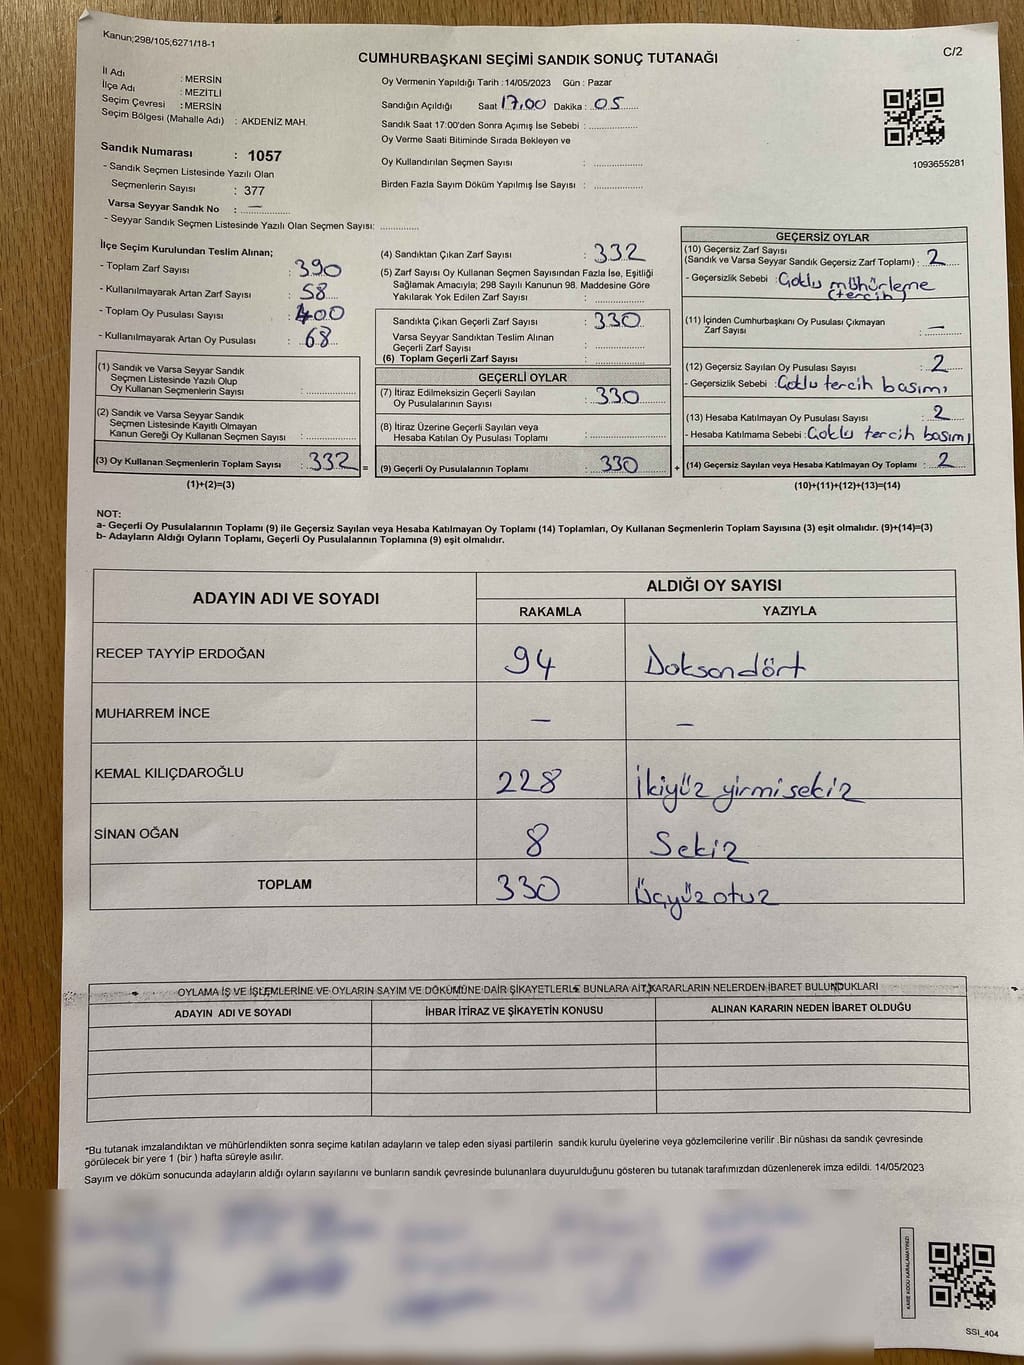 Kanun;298/105;6271/18-1
CUMHURBAŞKANI SEÇİMİ SANDIK SONUÇ TUTANAĞI
C/2
İl Adı : MERSİN
İlçe Adı : MEZİTLİ
Seçim Çevresi : MERSİN
Seçim Bölgesi (Mahalle Adı) : AKDENİZ MAH.
Sandık Numarası : 1057
- Sandık Seçmen Listesinde Yazılı Olan
Seçmenlerin Sayısı : 377
Varsa Seyyar Sandık No : —
- Seyyar Sandık Seçmen Listesinde Yazılı Olan Seçmen Sayısı: ..............
Oy Vermenin Yapıldığı Tarih : 14/05/2023 Gün : Pazar
Sandığın Açıldığı Saat 17.00 Dakika : 05
Sandık Saat 17:00'den Sonra Açımış İse Sebebi : ..............
Oy Verme Saati Bitiminde Sırada Bekleyen ve
Oy Kullandırılan Seçmen Sayısı : ..............
Birden Fazla Sayım Döküm Yapılmış İse Sayısı : ..............
1093655281
İlçe Seçim Kurulundan Teslim Alınan;
- Toplam Zarf Sayısı : 390
- Kullanılmayarak Artan Zarf Sayısı : 58
- Toplam Oy Pusulası Sayısı : 400
- Kullanılmayarak Artan Oy Pusulası : 68
(1) Sandık ve Varsa Seyyar Sandık
Seçmen Listesinde Yazılı Olup
Oy Kullanan Seçmenlerin Sayısı : ..............
(2) Sandık ve Varsa Seyyar Sandık
Seçmen Listesinde Kayıtlı Olmayan
Kanun Gereği Oy Kullanan Seçmen Sayısı : ..............
(3) Oy Kullanan Seçmenlerin Toplam Sayısı : 332 =
(1)+(2)=(3)
(4) Sandıktan Çıkan Zarf Sayısı : 332
(5) Zarf Sayısı Oy Kullanan Seçmen Sayısından Fazla İse, Eşitliği
Sağlamak Amacıyla; 298 Sayılı Kanunun 98. Maddesine Göre
Yakılarak Yok Edilen Zarf Sayısı : ..............
Sandıkta Çıkan Geçerli Zarf Sayısı : 330
Varsa Seyyar Sandıktan Teslim Alınan
Geçerli Zarf Sayısı : ..............
(6) Toplam Geçerli Zarf Sayısı : ..............
GEÇERLİ OYLAR
(7) İtiraz Edilmeksizin Geçerli Sayılan
Oy Pusulalarının Sayısı : 330
(8) İtiraz Üzerine Geçerli Sayılan veya
Hesaba Katılan Oy Pusulası Toplamı : ..............
(9) Geçerli Oy Pusulalarının Toplamı : 330 +
GEÇERSİZ OYLAR
(10) Geçersiz Zarf Sayısı
(Sandık ve Varsa Seyyar Sandık Geçersiz Zarf Toplamı) : 2
- Geçersizlik Sebebi : Çoklu mühürleme
(tercih)
(11) İçinden Cumhurbaşkanı Oy Pusulası Çıkmayan
Zarf Sayısı : —
(12) Geçersiz Sayılan Oy Pusulası Sayısı : 2
- Geçersizlik Sebebi : Çoklu tercih basımı
(13) Hesaba Katılmayan Oy Pusulası Sayısı : 2
- Hesaba Katılmama Sebebi : Çoklu tercih basımı
(14) Geçersiz Sayılan veya Hesaba Katılmayan Oy Toplamı : 2
(10)+(11)+(12)+(13)=(14)
NOT:
a- Geçerli Oy Pusulalarının Toplamı (9) ile Geçersiz Sayılan veya Hesaba Katılmayan Oy Toplamı (14) Toplamları, Oy Kullanan Seçmenlerin Toplam Sayısına (3) eşit olmalıdır. (9)+(14)=(3)
b- Adayların Aldığı Oyların Toplamı, Geçerli Oy Pusulalarının Toplamına (9) eşit olmalıdır.
ADAYIN ADI VE SOYADI
ALDIĞI OY SAYISI
RAKAMLA YAZIYLA
RECEP TAYYİP ERDOĞAN 94 Doksandört
MUHARREM İNCE — —
KEMAL KILIÇDAROĞLU 228 İkiyüz yirmisekiz
SİNAN OĞAN 8 Sekiz
TOPLAM 330 Üçyüzotuz
OYLAMA İŞ VE İŞLEMLERİNE VE OYLARIN SAYIM VE DÖKÜMÜNE DAİR ŞİKAYETLERLE BUNLARA AİT KARARLARIN NELERDEN İBARET BULUNDUKLARI
ADAYIN ADI VE SOYADI İHBAR İTİRAZ VE ŞİKAYETİN KONUSU ALINAN KARARIN NEDEN İBARET OLDUĞU
*Bu tutanak imzalandıktan ve mühürlendikten sonra seçime katılan adayların ve talep eden siyasi partilerin sandık kurulu üyelerine veya gözlemcilerine verilir .Bir nüshası da sandık çevresinde
görülecek bir yere 1 (bir ) hafta süreyle asılır.
Sayım ve döküm sonucunda adayların aldığı oyların sayılarını ve bunların sandık çevresinde bulunanlara duyurulduğunu gösteren bu tutanak tarafımızdan düzenlenerek imza edildi. 14/05/2023
KARE KODU KARALAMAYINIZ!
SSI_404